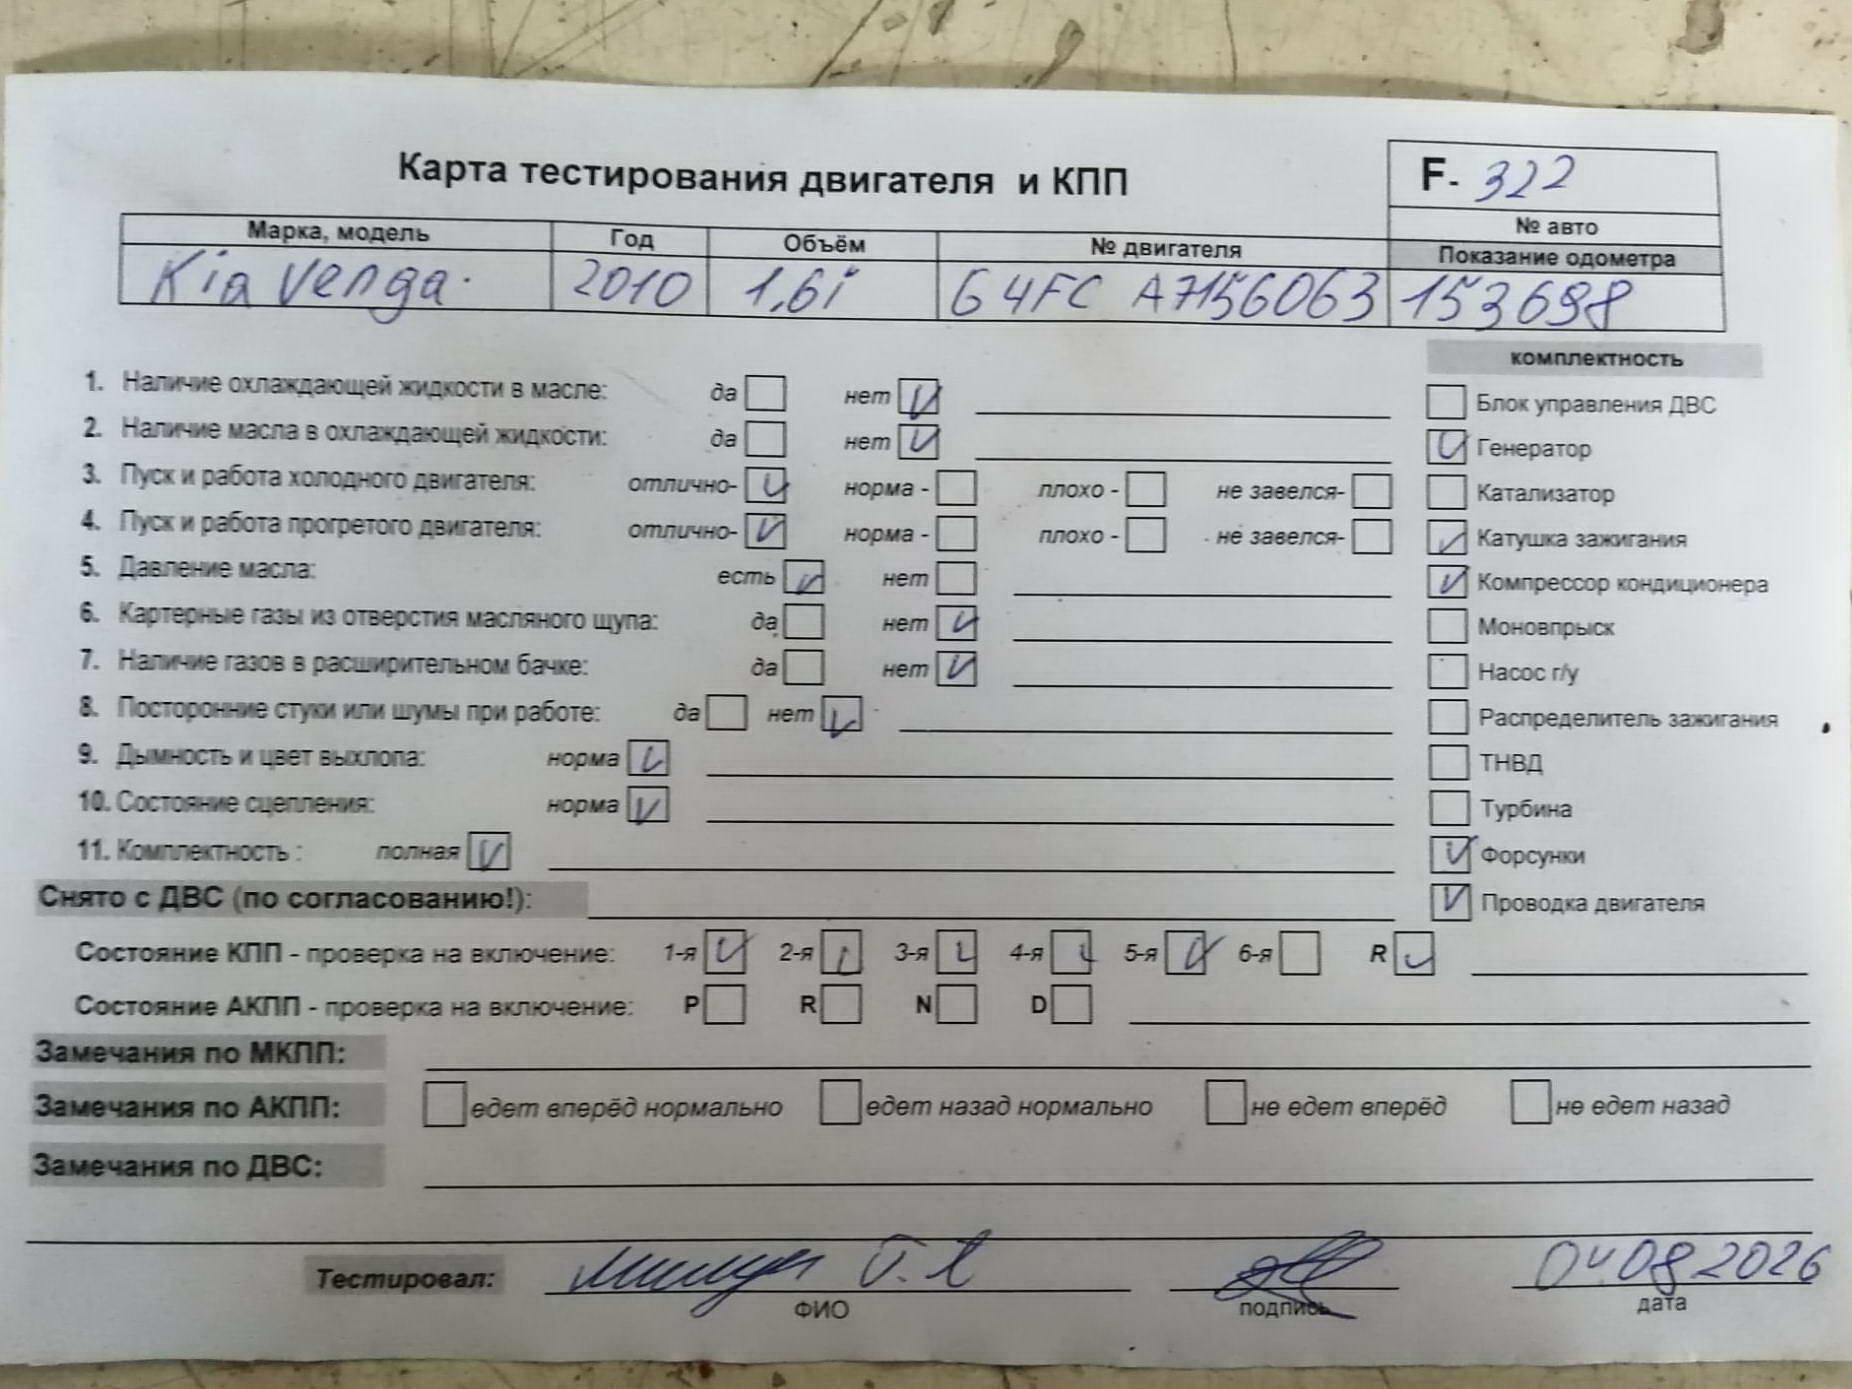 Карта тестирования двигателя и КПП
F- 322
№ авто
Марка, модель Год Объём № двигателя Показание одометра
Kia Venga. 2010 1,6i G4FC A7156063 153698
комплектность
1. Наличие охлаждающей жидкости в масле: да нет V
2. Наличие масла в охлаждающей жидкости: да нет V
3. Пуск и работа холодного двигателя: отлично- V норма - плохо - не завелся-
4. Пуск и работа прогретого двигателя: отлично- V норма - плохо - не завелся-
5. Давление масла: есть V нет
6. Картерные газы из отверстия масляного щупа: да нет V
7. Наличие газов в расширительном бачке: да нет V
8. Посторонние стуки или шумы при работе: да нет V
9. Дымность и цвет выхлопа: норма V
10. Состояние сцепления: норма V
11. Комплектность : полная V
Блок управления ДВС
V Генератор
Катализатор
V Катушка зажигания
V Компрессор кондиционера
Моновпрыск
Насос г/у
Распределитель зажигания
ТНВД
Турбина
V Форсунки
V Проводка двигателя
Снято с ДВС (по согласованию!):
Состояние КПП - проверка на включение: 1-я V 2-я V 3-я V 4-я V 5-я V 6-я R V
Состояние АКПП - проверка на включение: P R N D
Замечания по МКПП:
Замечания по АКПП: едет вперёд нормально едет назад нормально не едет вперёд не едет назад
Замечания по ДВС:
Тестировал: 04.08.2026
ФИО подпись дата